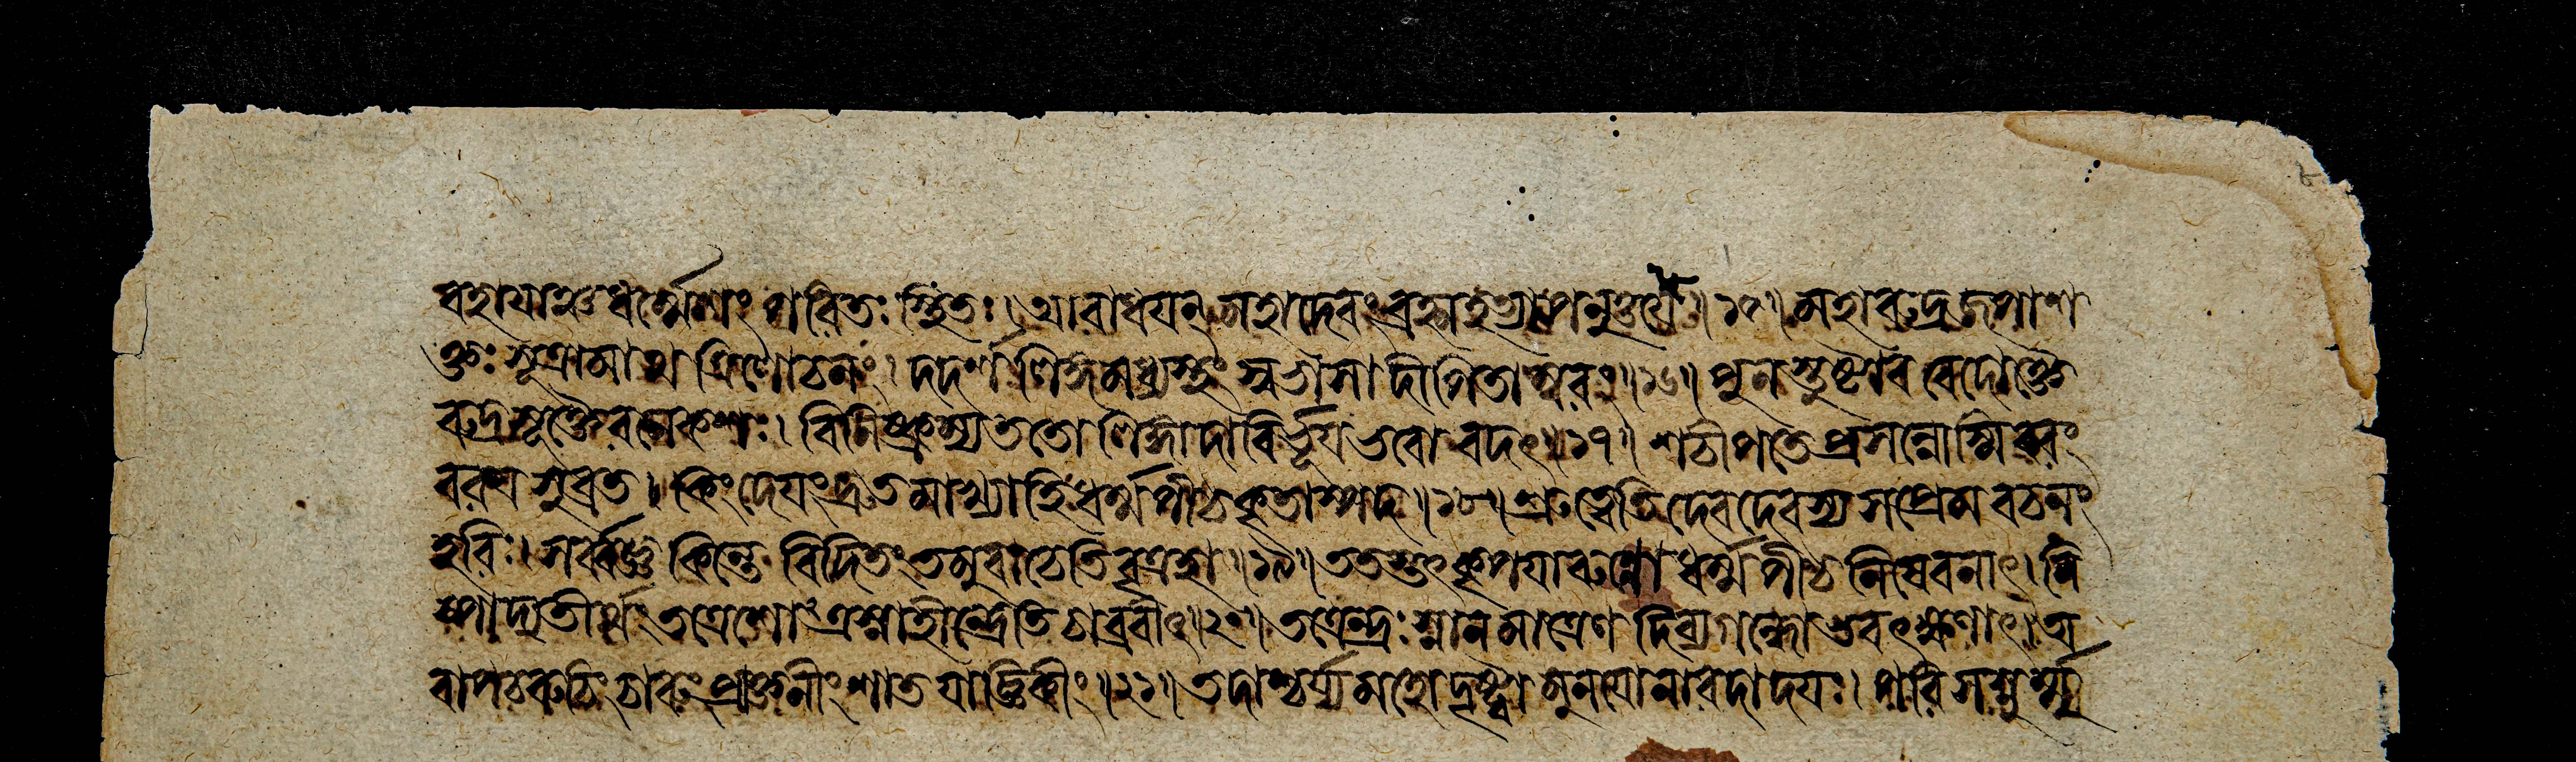 বহাযাথ ধর্ম্মেশং পরিতঃ স্থিতঃ। আরাধযন্ মহাদেবং ব্রহ্মহত্যাপনুত্তযে॥১৫॥ মহারুদ্রজপাশ
ক্তঃ সূত্রামাথ ত্রিলোচনং। দদর্শ লিঙ্গমধ্যস্থং স্বভাসা দীপিতাম্বরং॥১৬॥ পুনস্তুষ্টাব বেদোক্তৈ
রুদ্রসূক্তৈরনেকশঃ। বিনিষ্ক্রম্য ততো লিঙ্গাদাবির্ভূয ভবোবদৎ॥১৭॥ শচীপতে প্রসন্নোস্মি বরং
বরয সুব্রত। কিং দেযং দ্রুতমাখ্যাহি ধর্ম্মপীঠকৃতাস্পদ॥১৮॥ শ্রুত্বেতি দেবদেবস্য সপ্রেম বচনং
হরিঃ। সর্ব্বজ্ঞ কিন্তে বিদিতং তমুবাচেতি বৃত্রহা॥১৯॥ ততস্তৎকৃপযা রুদ্রো ধর্ম্মপীঠনিষেবনাৎ। নি
ষ্পাদ্য তীর্থং তত্রেশোঽত্র স্নাহীন্দ্রেতি চাব্রবীৎ॥২০॥ তত্রেন্দ্রঃ স্নানমাত্রেণ দিব্যগন্ধোভবৎক্ষণাৎ। অ
বাপ চ রুচিং চারুং প্রাক্তনীং শাতযাজ্ঞিকীং॥২১॥ তদাশ্চর্য্যমহো দৃষ্ট্বা মুনযো নারদাদযঃ। পরিসস্নুর্ম্মু